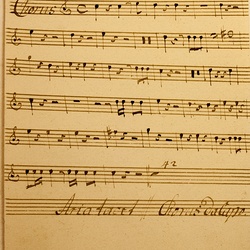 Chorus
42
Aria tacet Chorus Da Capo